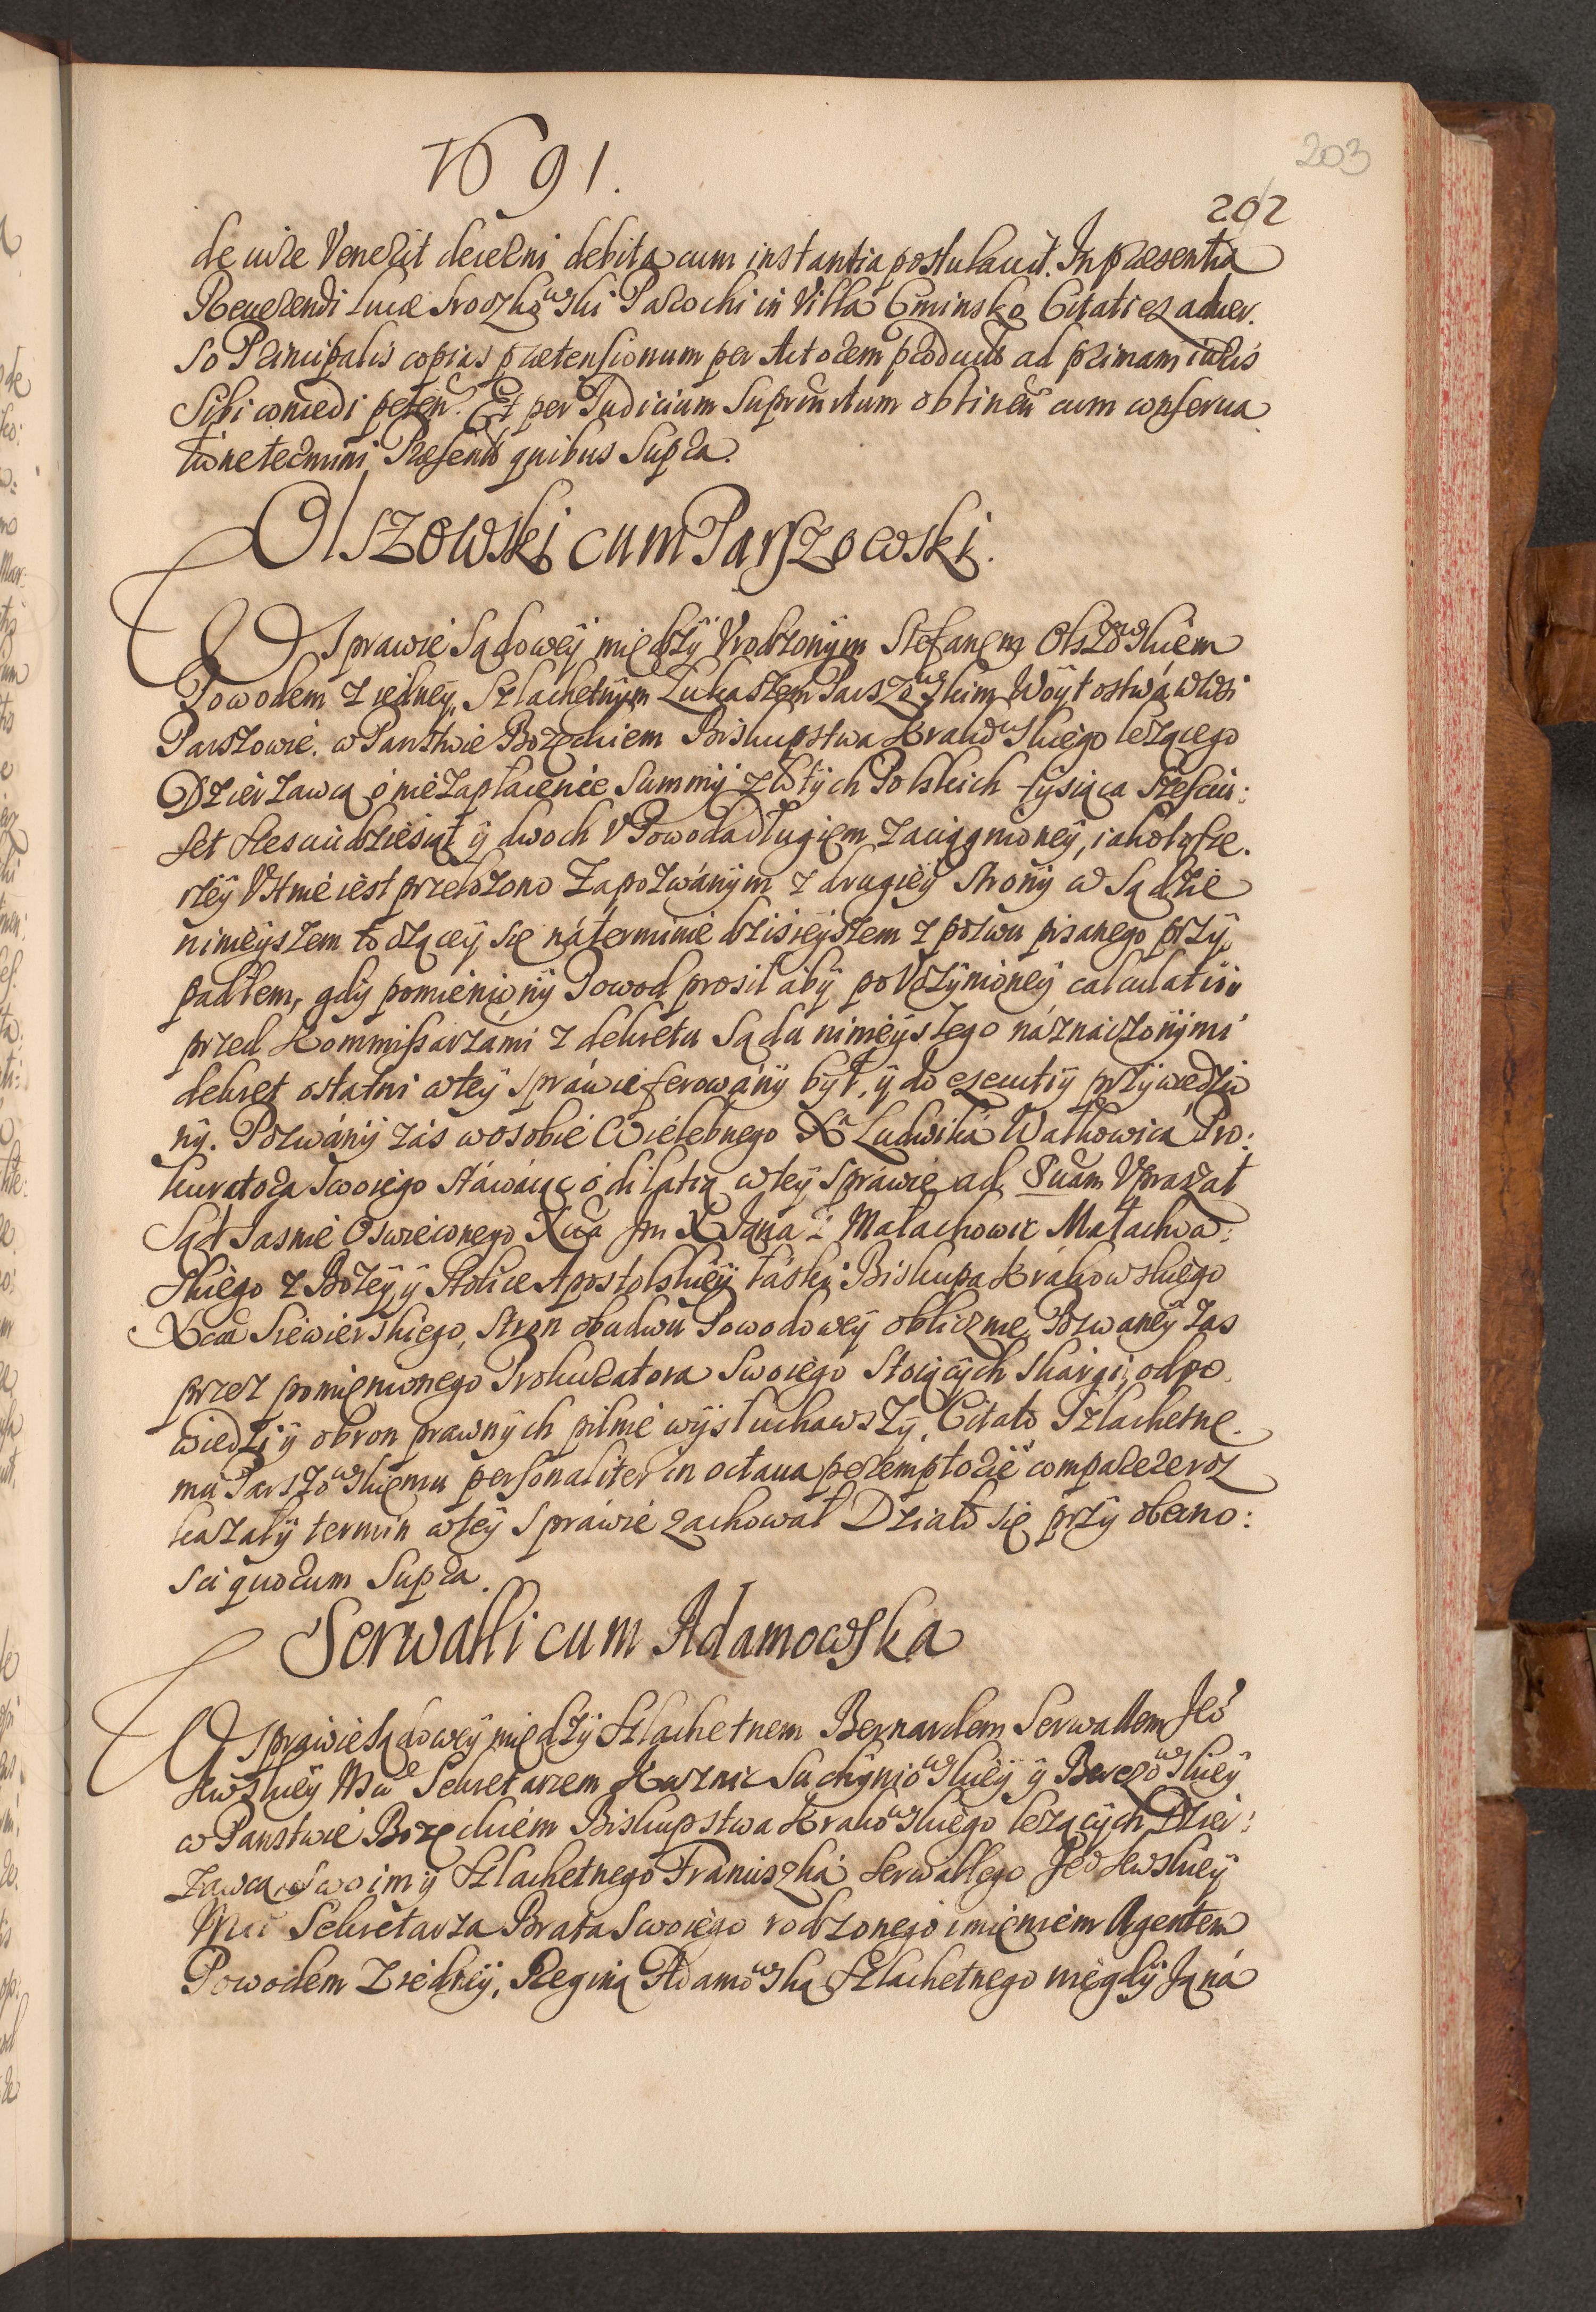 1691.
203
202
de iure Venerit decerni debita cum instantia postulavit. In præsentia
Reverendi Lucæ Sroszkowski Parochi in Villa Cminsko Citati ex adver.
so Principalis copias prætensionum per Actorem product ad primam iuris
Sibi concedi peten. Et per Iudicium Supranotatum obtinen cum conserva
tione termini Præsent quibus Supra.
Olszowski cum Parszowski.
W Sprawie Sądowey między Vrodzonym Stefanem Olszowskiem
Powodem z iedney, Szlachetnym Łukaszem Parszowskim Woytostwa wWsi
Parszowie. w Panstwie Bozęckiem Biskupstwa Krakowskiego leżącego
Dzierżawcą o niezapłacenie Summy złotych Polskich tysiąca Szescu:
set szescudziesiąt y dwoch V Powoda długiem zaciągnioney, iako to sze.
rzey Vstnie iest przełozono Zapozwanym z drugiey strony w Sądzie
ninieyszem toczącey się na terminie dzisieyszem z pozwu pisanego przy
padłem, gdy pomieniony Powod prosił aby po Vczynioney calculatiy
przed Kommissarzami z dekretu Sądu ninieyszego naznaczonymi
dekret ostatni wtey sprawie ferowany był, y do executiy przywiedzio
ny. Pozwany zas wosobie Wielebnego Xa Ludwika Watkowica Pro:
kuratora Swoiego stawaiąc o dilatią wtey Sprawie ad 8uam Vpraszał
Sąd Iasnie Oswieconego Xcia Jm X Jana z Małachowic Małachow:
skiego z Bożey y Stolice Apostolskiey łaski Biskupa Krakowskiego
Xcia Siewierskiego, Stron obudwu Powodowey oblicznie, Pozwaney zas
przez pomienionego Prokuratora Swoiego Stoiących skargi, odpo
wiedzi y obron prawnych pilnie wysłuchawszy, Citato Szlachetne.
mu Parszowskiemu personaliter in octava peremptorie comparere roz
kazały termin wtey Sprawie zachował Działo się przy obecno:
sci quorum Supra.
Serwalli cum Adamowska
W Sprawie Sądowey między Szlachetnem Bernardem Serwallem Jeo
Krolewskiey Mci Sekretarzem Kuznic Suchyniowskiey y Berezowskiey
w Panstwie Bozęckiem Biskupstwa Krakowskiego leżących Dzier:
żawcą Swoim y Szlachetnego Franciszka Serwallego Jeo Krolewskiey
Mci Sekretarza Brata Swoiego rodzonego imieniem Agentem
Powodem Ziedney, Reginą Adamowską Szlachetnego niegdy Jana